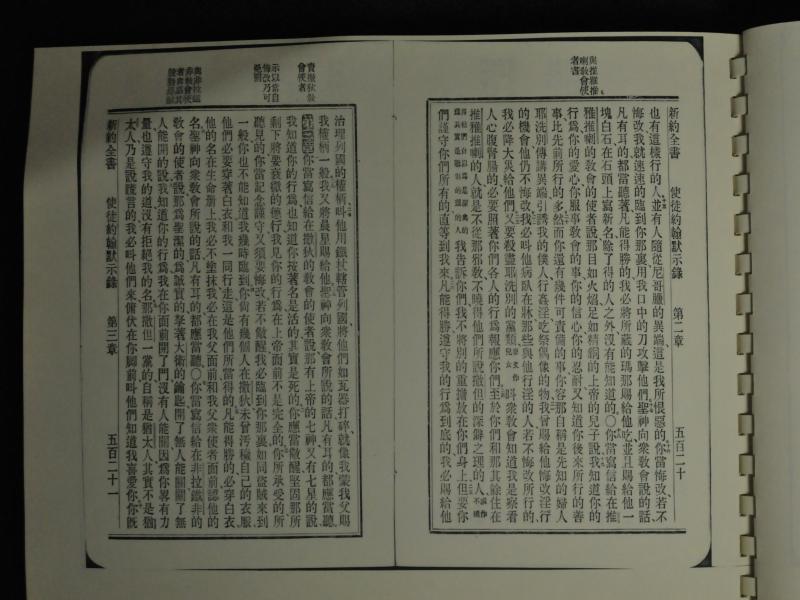 與推雅推
喇教會使
者書
新約全書 使徒約翰默示錄 第二章 五百二十
也有這樣行的人、並有人隨從尼哥臘的異端、這是我所恨惡的、你當悔改、若不
悔改、我就速速的臨到你那裏、用我口中的刀攻擊他們、聖神向衆敎會說的話、
凡有耳的都當聽著、凡能得勝的、我必將所蔵的瑪那賜給他吃、並且賜給他一
塊白石、在石頭上寫新名、除了得的人之外、沒有能知道的、〇你當寫信給在推
雅推喇的敎會的使者說、那目如火焰、足如精銅的上帝的兒子說、我知道你的
行爲、你的愛心、你服事敎會的事、你的信心、你的忍耐、又知道你後來所行的善
事、比先前所行的多、然而你還有幾件可責備的事、你容那自稱是先知的婦人
耶洗別傳講異端、引誘我的僕人行姦淫、吃祭偶像的物、我曾賜給他悔改淫行
的機會、他仍不悔改、我必叫他病臥在牀、那些與他行淫的人、若不悔改所行的、
我必降大災給他們、又要殺盡耶洗別的黨類、叫衆敎會知道我是察看
人心腹腎腸的、必要照著你們各人的行爲報應你們、至於你們和那其餘住在
推雅推喇的人、就是不從那邪敎、不曉得他們所說撒但的深僻之理的人、
我告訴你們、我不將別的重擔放在你們身上、但要你
們謹守你們所有的、直等到我來、凡能得勝遵守我的行爲到底的、我必賜給他
責撒狄敎
會使者
示以當自
悔改乃可
免罰
治理列國的權柄、叫他用鐵杖轄管列國、將他們如瓦器打碎、就像我蒙我父賜
我權柄一般、我又將晨星賜給他、聖神向衆敎會所說的話、凡有耳的都應當聽、
第三章 你當寫信給在撒狄的敎會的使者說、那有上帝的七神又有七星的說、
我知道你的行爲、也知道你按著名是活的、其實是死的、你應當儆醒、堅固那所
剩下將要衰微的德行、我見你的行爲在上帝面前不是完全的、你所承受的所
聽見的、你當記念謹守、又須要悔改、若不儆醒、我必臨到你那裏、如同盜賊來到
一般、你也不能知道我幾時臨到你、尙有幾個人在撒狄、未曾汚穢自己的衣服、
他們必要穿著白衣、和我一同行走、這是他們所當得的、凡能得勝的必穿白衣、
他的名在生命册上、我必不塗抹、我必在我父面前和我父衆使者面前認他的
名、聖神向衆敎會所說的話、凡有耳的都應當聽、〇你當寫信給在非拉鐵非的
敎會的使者說、那爲聖潔的、爲誠實的、拿著大衛的鑰匙、開了無人能關、關了無
人能開的說、我知道你的行爲、我在你面前開了門、沒有人能關、因爲你畧有力
量、也遵守我的道、沒有拒絕我的名、那撒但一黨的、自稱是猶太人、其實不是猶
太人、乃是說謊言的、我必叫他們來俯伏在你脚前、叫他們知道我喜愛你、你旣
新約全書 使徒約翰默示錄 第三章 五百二十一